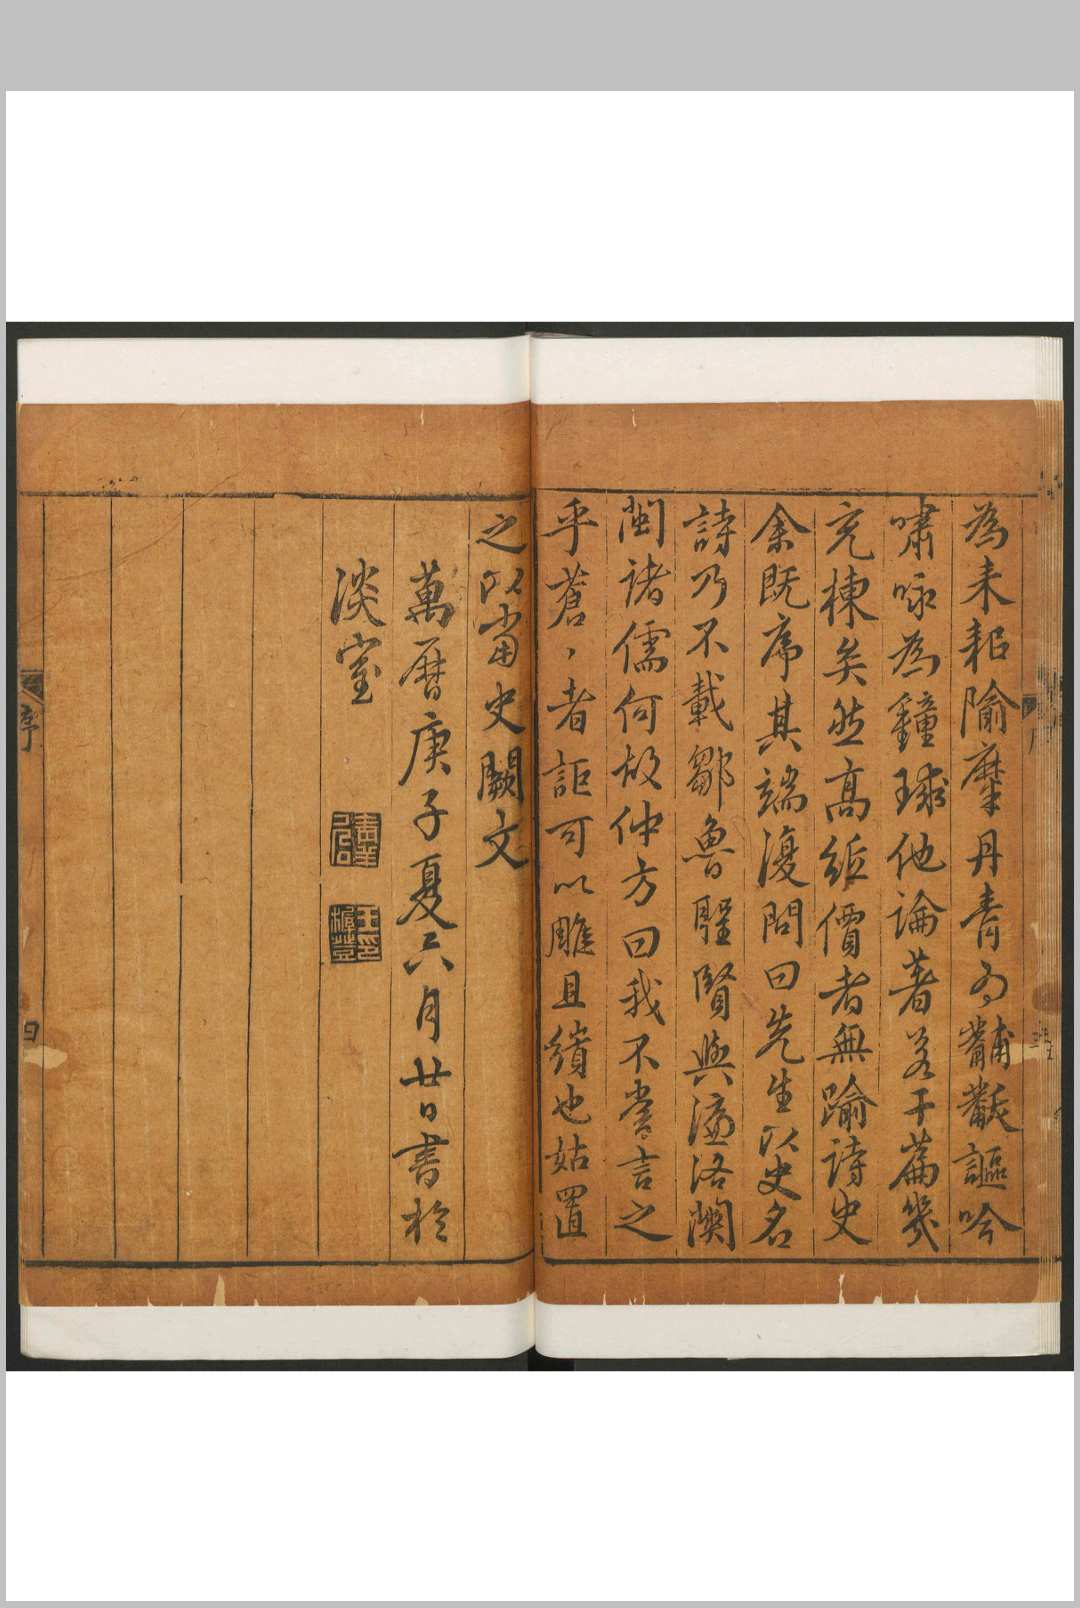 為耒耜隃麋丹青為黼黻謳吟
嘯咏為鐘球他論著若干篇幾
充棟矣然高紙價者無踰詩史
余既序其端復問曰先生以史名
詩乃不載鄒魯聖賢與濂洛關
閩諸儒何故仲方曰我不嘗言之
乎蒼丶者詎可以雕且繢也姑置
之以當史闕文
萬曆庚子夏六月廿日書於
淡室
序
四